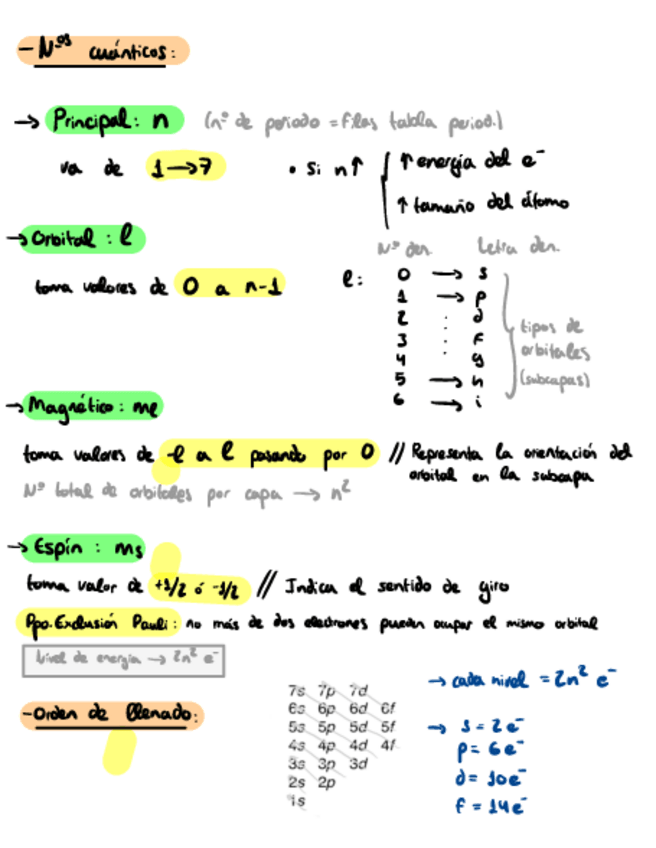 - Nºs cuánticos:
→ Principal: n (nº de periodo = filas tabla period.)
va de 1→7 • Si n↑ ↑ energía del e⁻
↑ tamaño del átomo
→ Orbital: l
Nº den. Letra den.
toma valores de 0 a n-1 l: 0 → s
1 → p
2 : d
3 : f
4 : g
5 → h
6 → i
tipos de
orbitales
(subcapas)
→ Magnético: me
toma valores de -l a l pasando por 0 // Representa la orientación del
orbital en la subcapa
Nº total de orbitales por capa → n²
→ Espín: ms
toma valor de +1/2 ó -1/2 // Indica el sentido de giro
Ppo. Exclusión Pauli: no más de dos electrones pueden ocupar el mismo orbital
Nivel de energía → 2n² e⁻
- Orden de llenado:
7s 7p 7d
6s 6p 6d 6f
5s 5p 5d 5f
4s 4p 4d 4f
3s 3p 3d
2s 2p
1s
→ cada nivel = 2n² e⁻
→ s = 2e⁻
p = 6e⁻
d = 10e⁻
f = 14e⁻